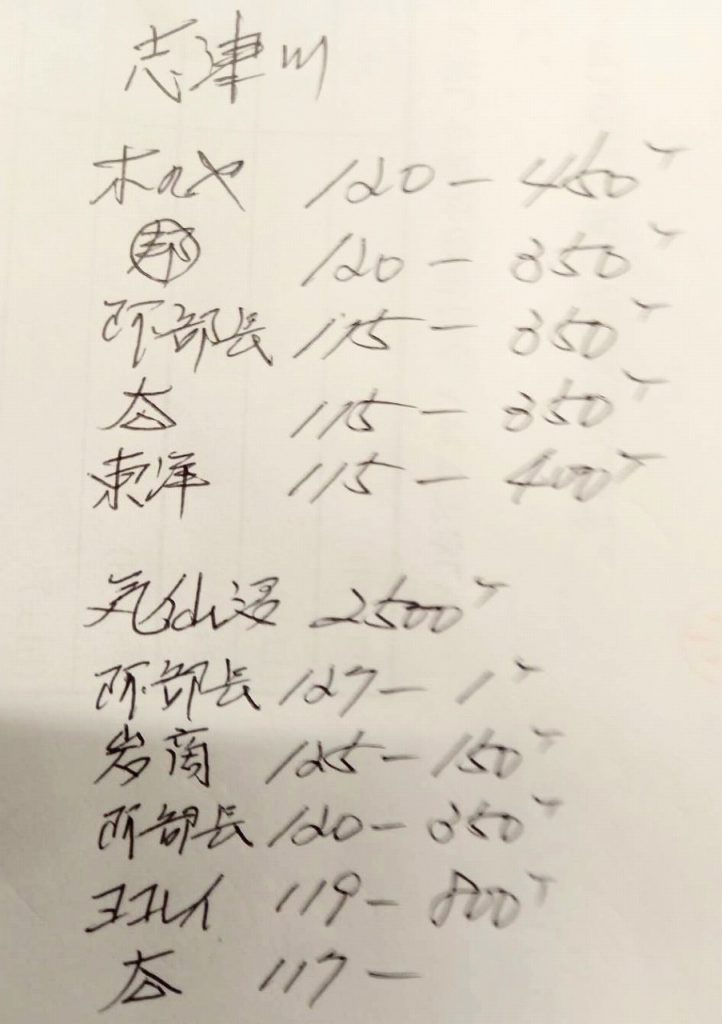 志津川
ホルヤ 120- 450T
㋐邦 120- 350T
阿部長 115- 350T
115- 350T
東洋 115- 400T
気仙沼 2500T
阿部長 127- 1T
岩商 125- 150T
阿部長 120- 350T
ヨコレイ 119- 800T
117-